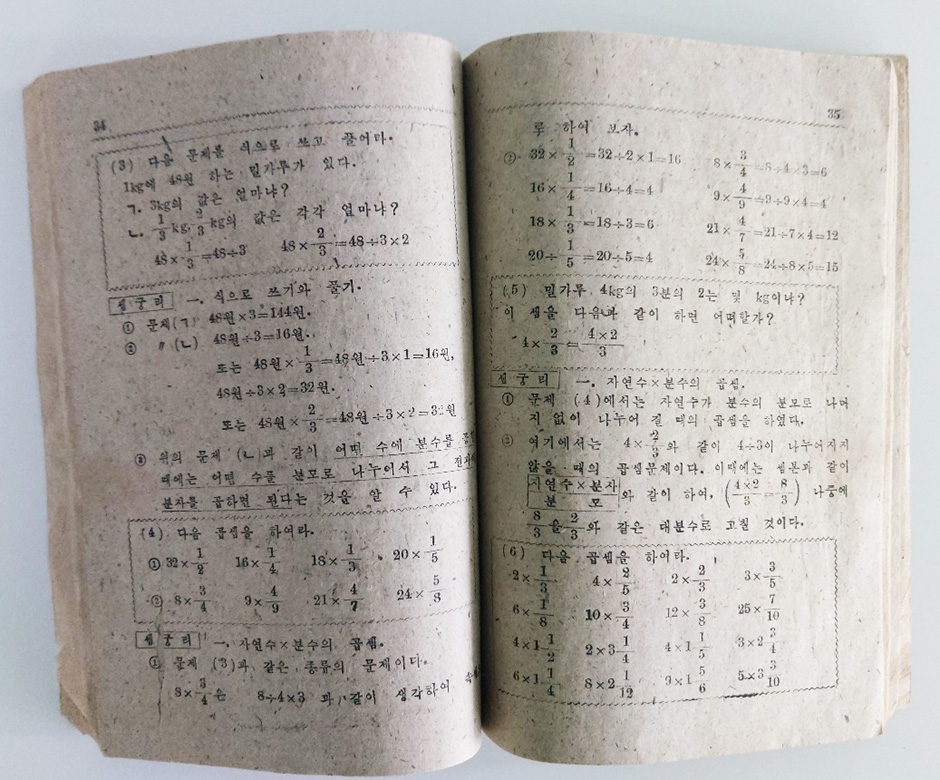 34
(3) 다음 문제를 식으로 쓰고 풀어라.
1kg에 48원 하는 밀가루가 있다.
ㄱ. 3kg의 값은 얼마냐?
ㄴ. 1/3 kg, 2/3 kg의 값은 각각 얼마냐?
48×1/3=48÷3 48×2/3=48÷3×2
셈궁리 一. 식으로 쓰기와 풀기.
① 문제(ㄱ) 48원×3=144원.
② 〃 (ㄴ) 48원÷3=16원.
또는 48원×1/3=48원÷3×1=16원,
48원÷3×2=32원.
또는 48원×2/3=48원÷3×2=32원
③ 위의 문제 (ㄴ)과 같이 어떤 수에 분수를
때에는 어떤 수를 분모로 나누어서 그
분자를 곱하면 된다는 것을 알 수 있다.
(4) 다음 곱셈을 하여라.
① 32×1/2 16×1/4 18×1/3 20×1/5
② 8×3/4 9×4/9 21×4/7 24×5/8
셈궁리 一. 자연수×분수의 곱셈.
① 문제 (3)과 같은 종류의 문제이다.
8×3/4은 8÷4×3 과 같이 생각하여
35
롯 하여 보자.
② 32×1/2=32÷2×1=16 8×3/4=8÷4×3=6
16×1/4=16÷4=4 9×4/9=9÷9×4=4
18×1/3=18÷3=6 21×4/7=21÷7×4=12
20÷1/5=20÷5=4 24×5/8=24÷8×5=15
(5) 밀가루 4kg의 3분의 2는 몇 kg이냐?
이 셈을 다음과 같이 하면 어떠할가?
4×2/3=4×2/3
셈궁리 一. 자연수×분수의 곱셈.
① 문제 (4)에서는 자연수가 분수의 분모로 나머
지 없이 나누어 질 때의 곱셈을 하였다.
② 여기에서는 4×2/3와 같이 4÷3이 나누어지지
않을 때의 곱셈문제이다. 이때에는 셈본과 같이
자연수×분자/분모 와 같이 하여, (4×2/3=8/3) 나중에
8/3을 2 2/3와 같은 대분수로 고칠 것이다.
(6) 다음 곱셈을 하여라.
2×1/3 4×2/5 2×2/3 3×3/5
6×1/8 10×3/4 12×3/8 25×7/10
4×1 1/2 2×3 1/4 4×1 1/5 3×2 3/4
6×1 1/4 8×2 1/12 9×1 5/6 5×3 3/10